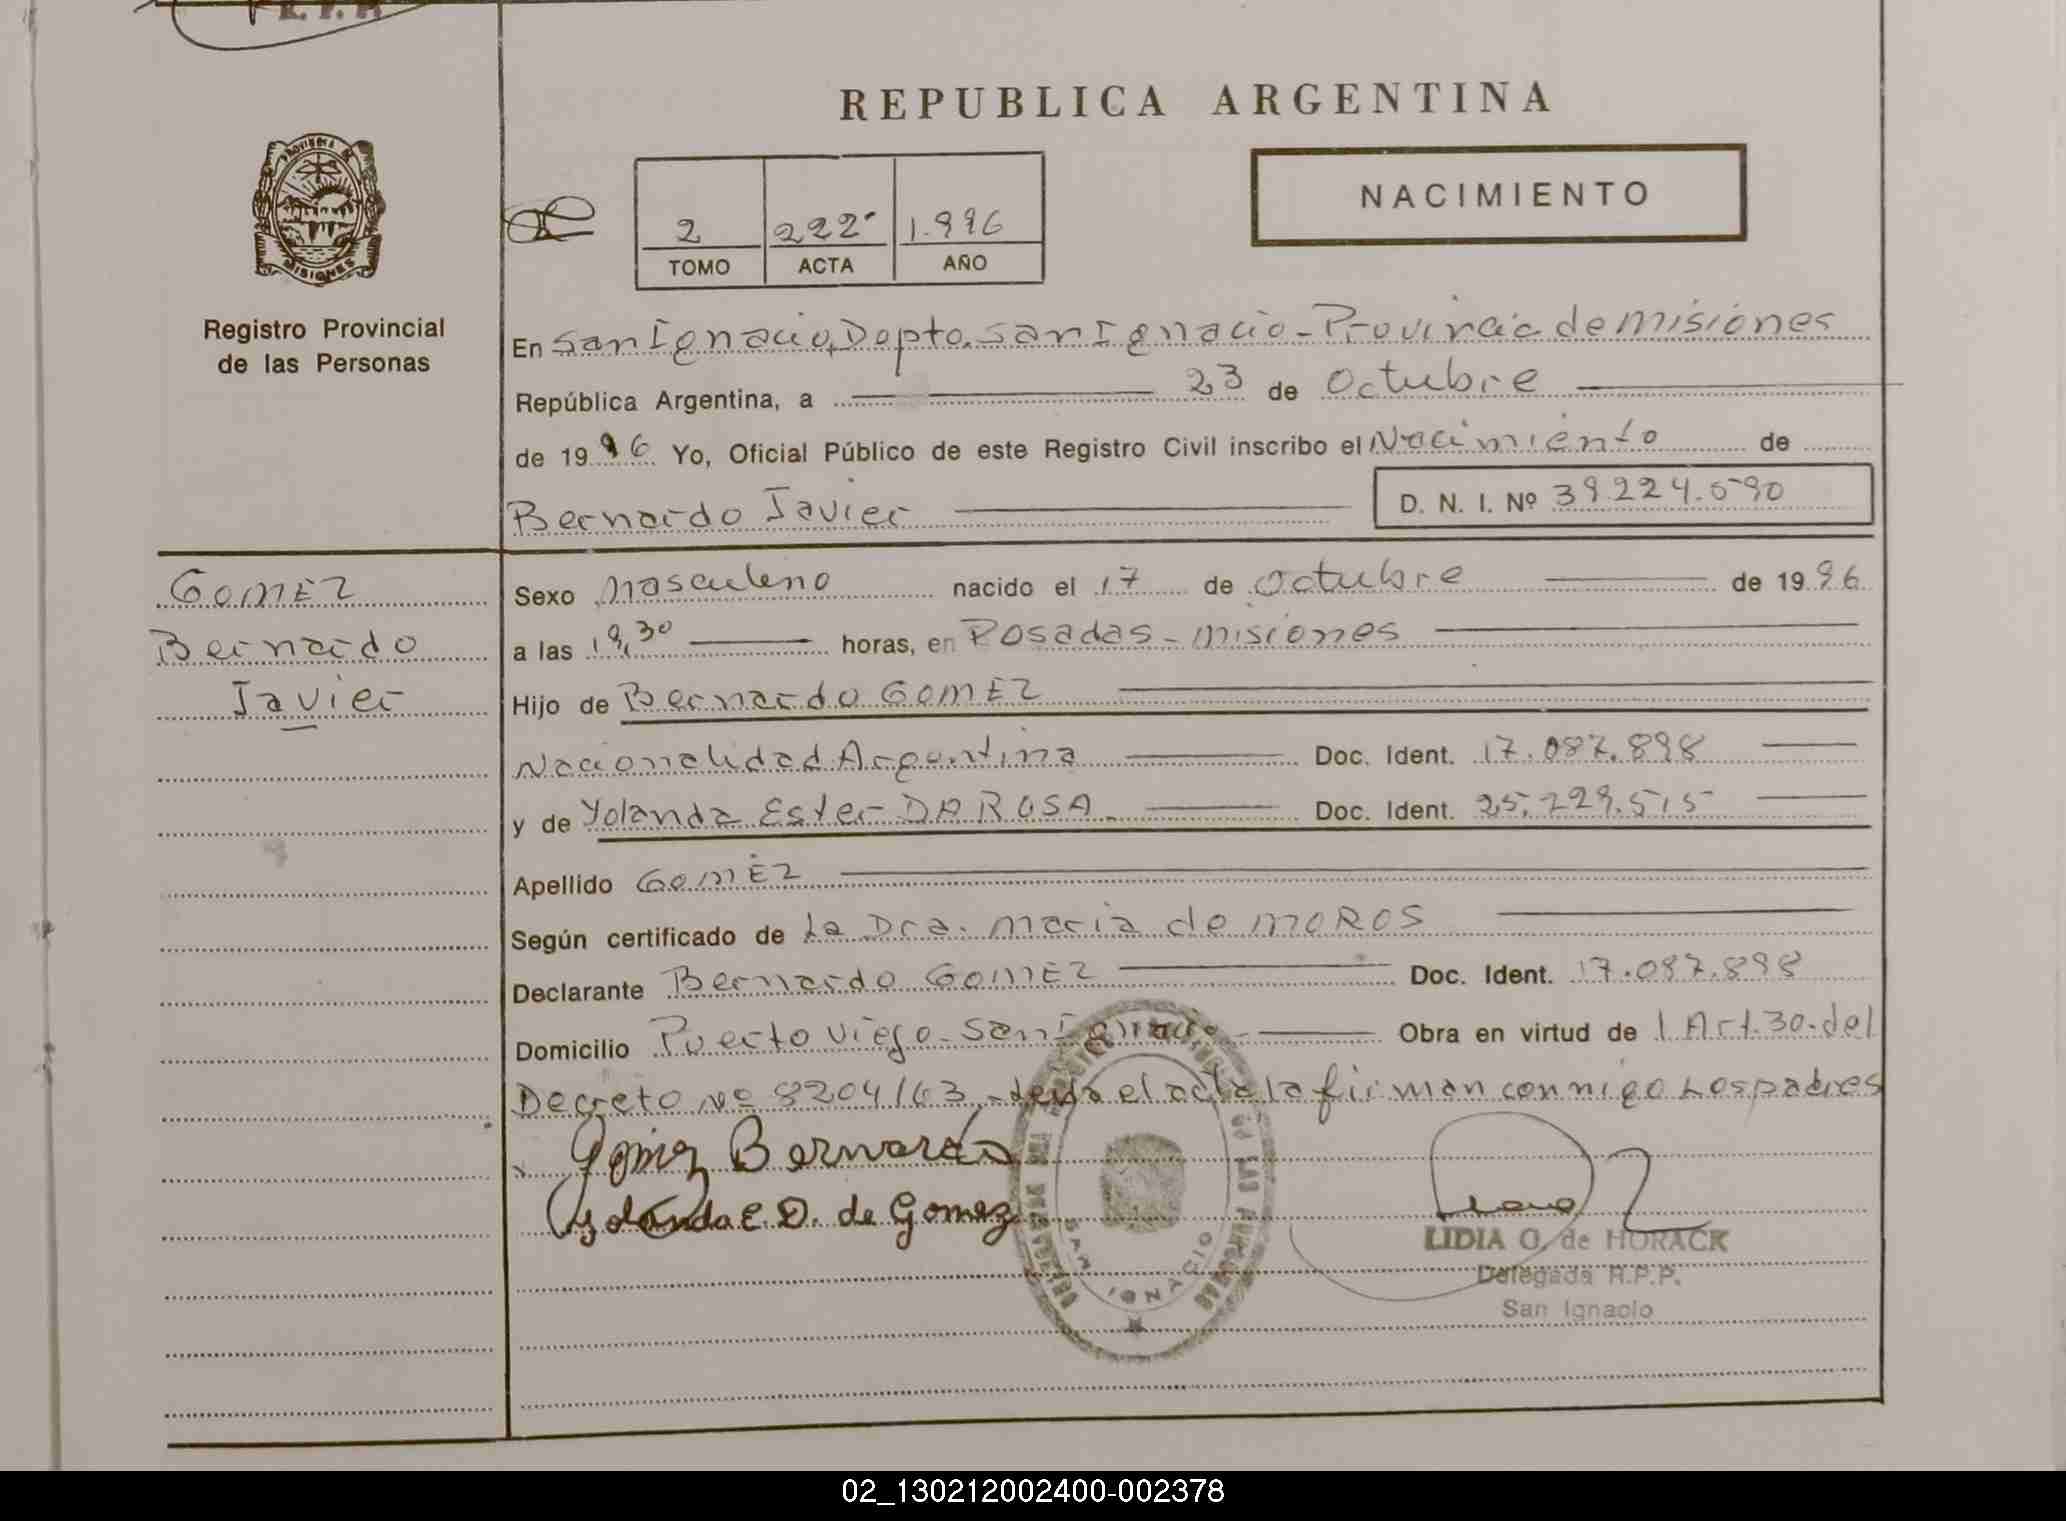 R. P. P.
REPUBLICA ARGENTINA
PROVINCIA DE
MISIONES
Registro Provincial
de las Personas
2 222 1.996
TOMO ACTA AÑO
NACIMIENTO
En San Ignacio, Dpto. San Ignacio - Provincia de Misiones
República Argentina, a 23 de Octubre
de 1996 Yo, Oficial Público de este Registro Civil inscribo el Nacimiento de
Bernardo Javier D. N. I. Nº 39.224.590
GOMEZ
Bernardo
Javier
Sexo Masculino nacido el 17 de Octubre de 1996
a las 19,30 horas, en Posadas - Misiones
Hijo de Bernardo GOMEZ
Nacionalidad Argentina Doc. Ident. 17.087.898
y de Yolanda Ester DA ROSA. Doc. Ident. 25.729.515
Apellido GOMEZ
Según certificado de La Dra. Maria de MOROS
Declarante Bernardo GOMEZ Doc. Ident. 17.087.898
Domicilio Puerto Viejo - San Ignacio - Obra en virtud de l Art. 30. del
Decreto Nº 8204/63 - leida el acta la firman conmigo Los padres
Gomez Bernardo
Yolanda E. D. de Gomez
SAN IGNACIO
LIDIA O. de HORACK
Delegada R.P.P.
San Ignacio
02_130212002400-002378